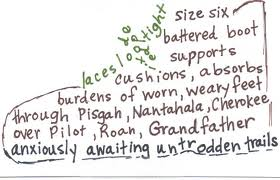 laces
tight
size six
battered boot
supports
cushions, absorbs
burdens of worn, weary feet
through Pisgah, Nantahala, Cherokee
over Pilot, Roan, Grandfather
anxiously awaiting untrodden trails